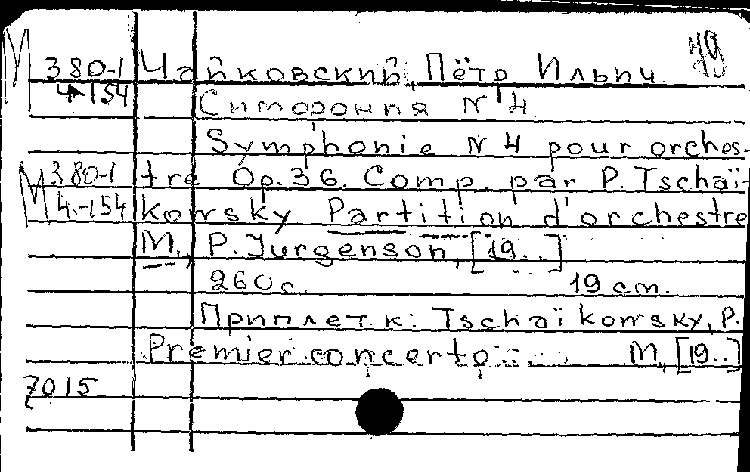 79
М 380-1 Чайковский, Пётр Ильич
4-154
Симфония N 4
Symphonie N 4 pour orches-
М 380-1 tre Op. 36. Comp. par P. Tschaï-
4.-154 kowsky Partition d'orchestre
М., P. Jurgenson, [19..]
260 с. 19 cm.
Приплет к: Tschaïkowsky, P.
Premier concerto ... М, [19..]
7015